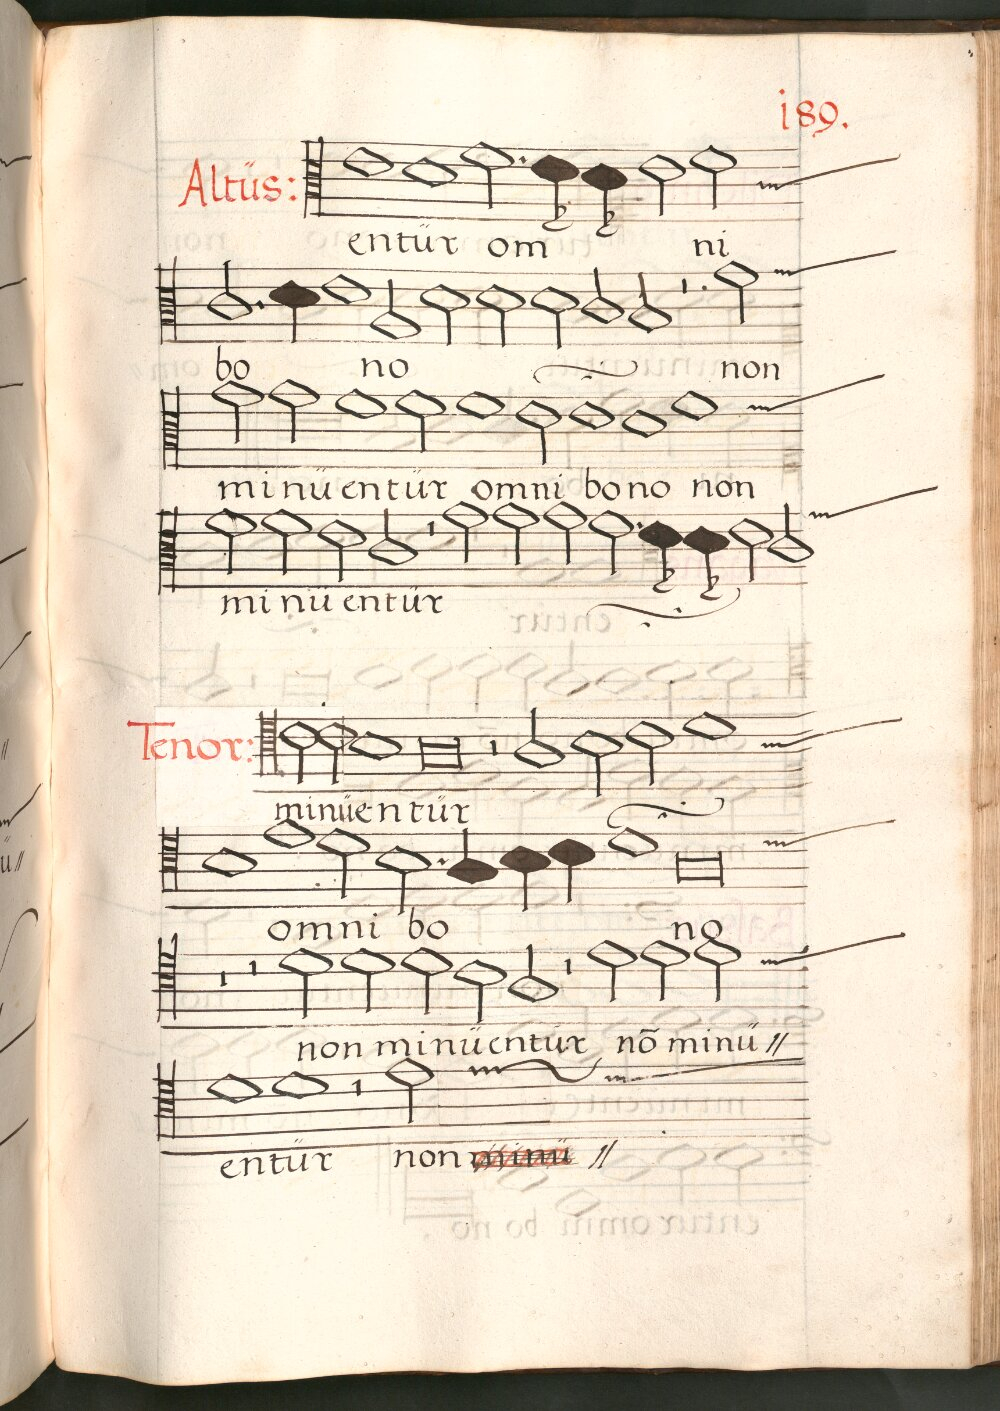 189.
Altüs:
entür om ni
bo no non
minüentür omni bono non
minüentür
Tenor:
minüentür
omni bo no
non minüentür nō minü//
entür non minü //